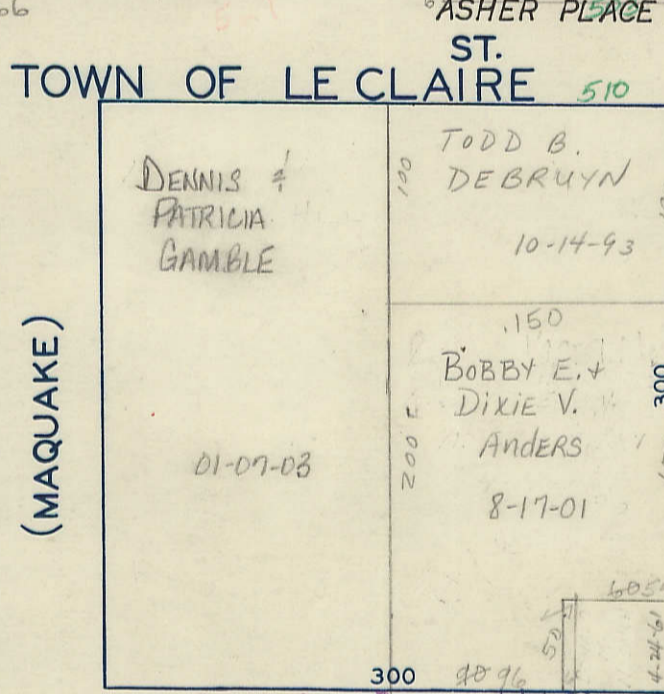 66
ASHER PLACE
ST.
TOWN OF LE CLAIRE 510
DENNIS &
PATRICIA
GAMBLE
01-07-03
100
TODD B.
DEBRUYN
10-14-93
.150
BOBBY E. +
DIXIE V.
ANDERS
8-17-01
200
300
(MAQUAKE)
50
4-24-61
300
96